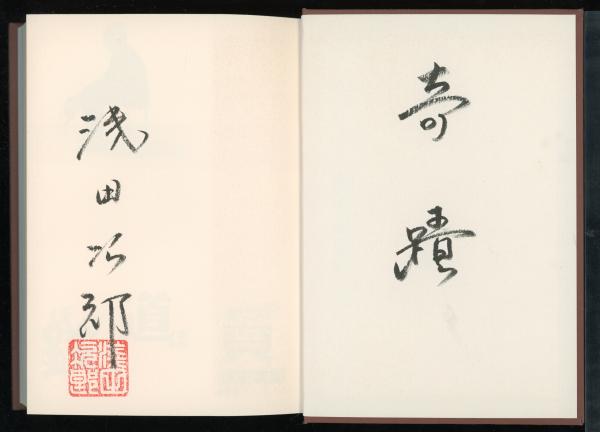 奇蹟
浅田次郎